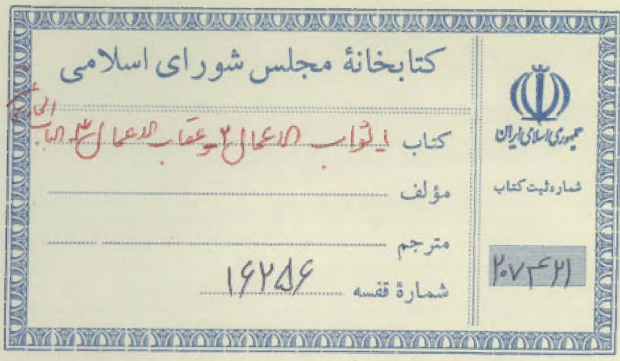 کتابخانهٔ مجلس شورای اسلامی
کتاب ۱ ثواب الاعمال ۲ وعقاب الاعمال ۳ الباب
مؤلف
مترجم
شمارهٔ قفسه ۱۶۲۵۶
جمهوری اسلامی ایران
شماره ثبت کتاب
۲۰۷۴۲۱